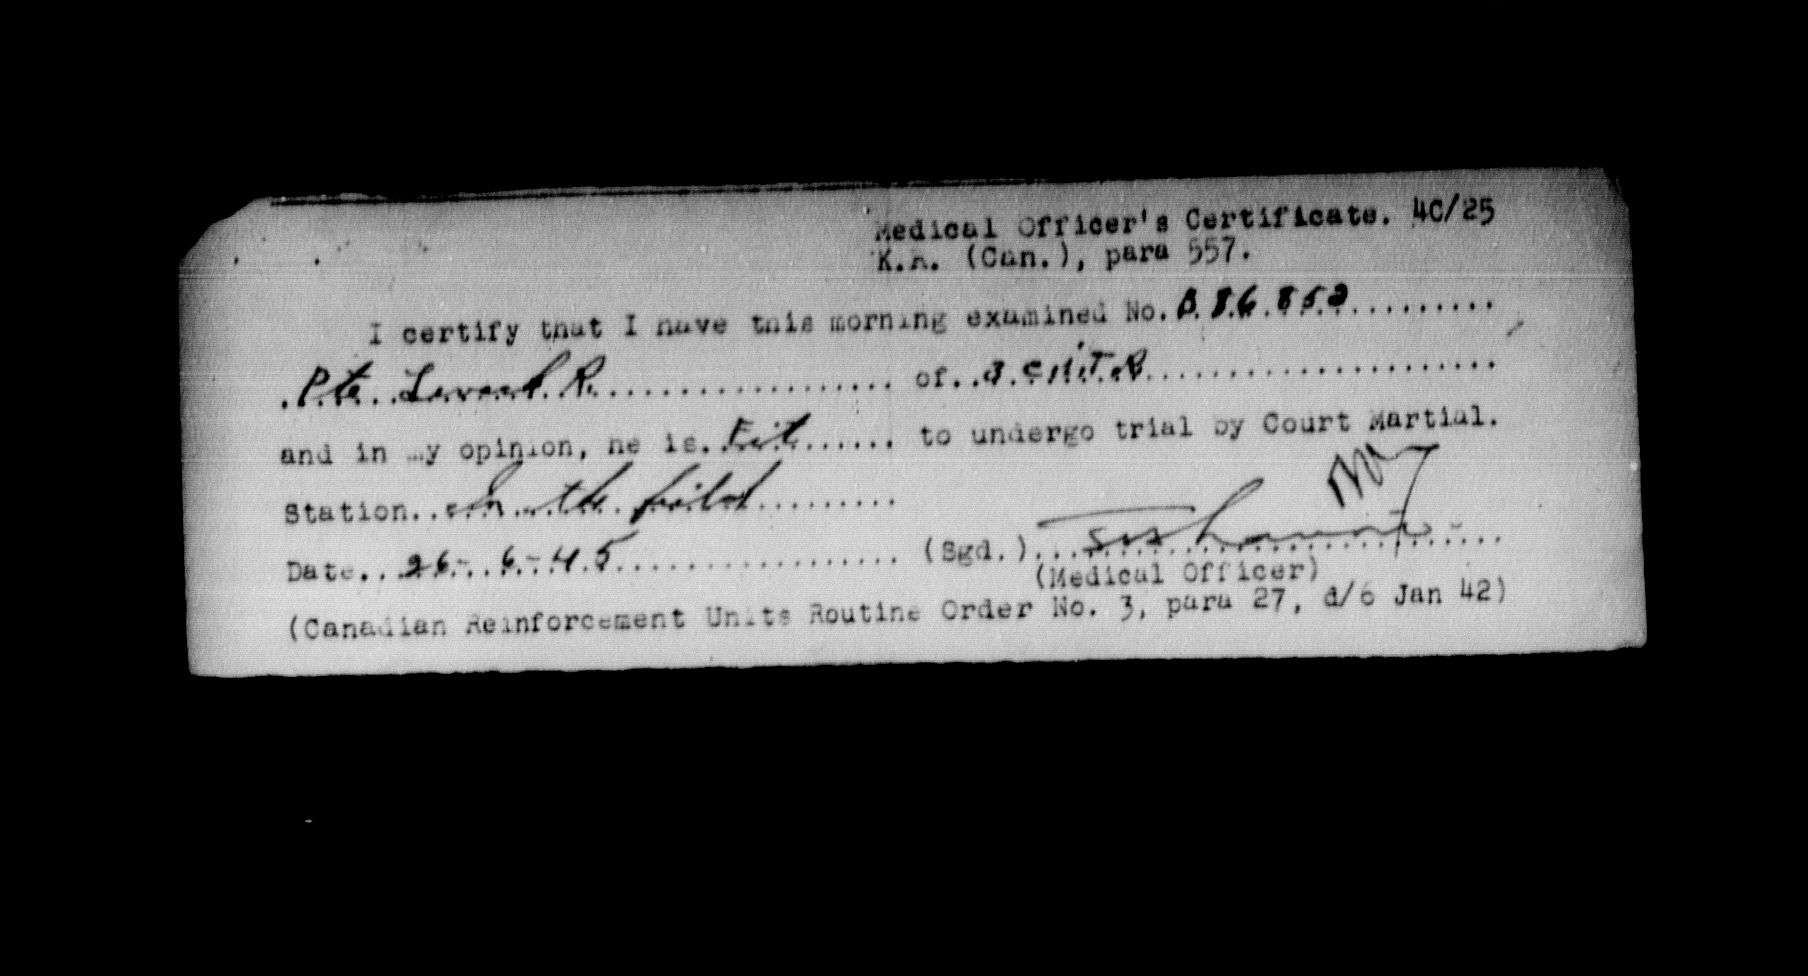 Medical Officer's Certificate. 4C/25
K.R. (Can.), para 557.
I certify that I have this morning examined No. B.86.852
Pte R. of. 3 C.N.I.T.R
and in my opinion, he is. Fit to undergo trial by Court Martial.
Station.. In the field
Date.. 26-6-45 (Sgd.)
(Medical Officer)
(Canadian Reinforcement Units Routine Order No. 3, para 27, d/6 Jan 42)